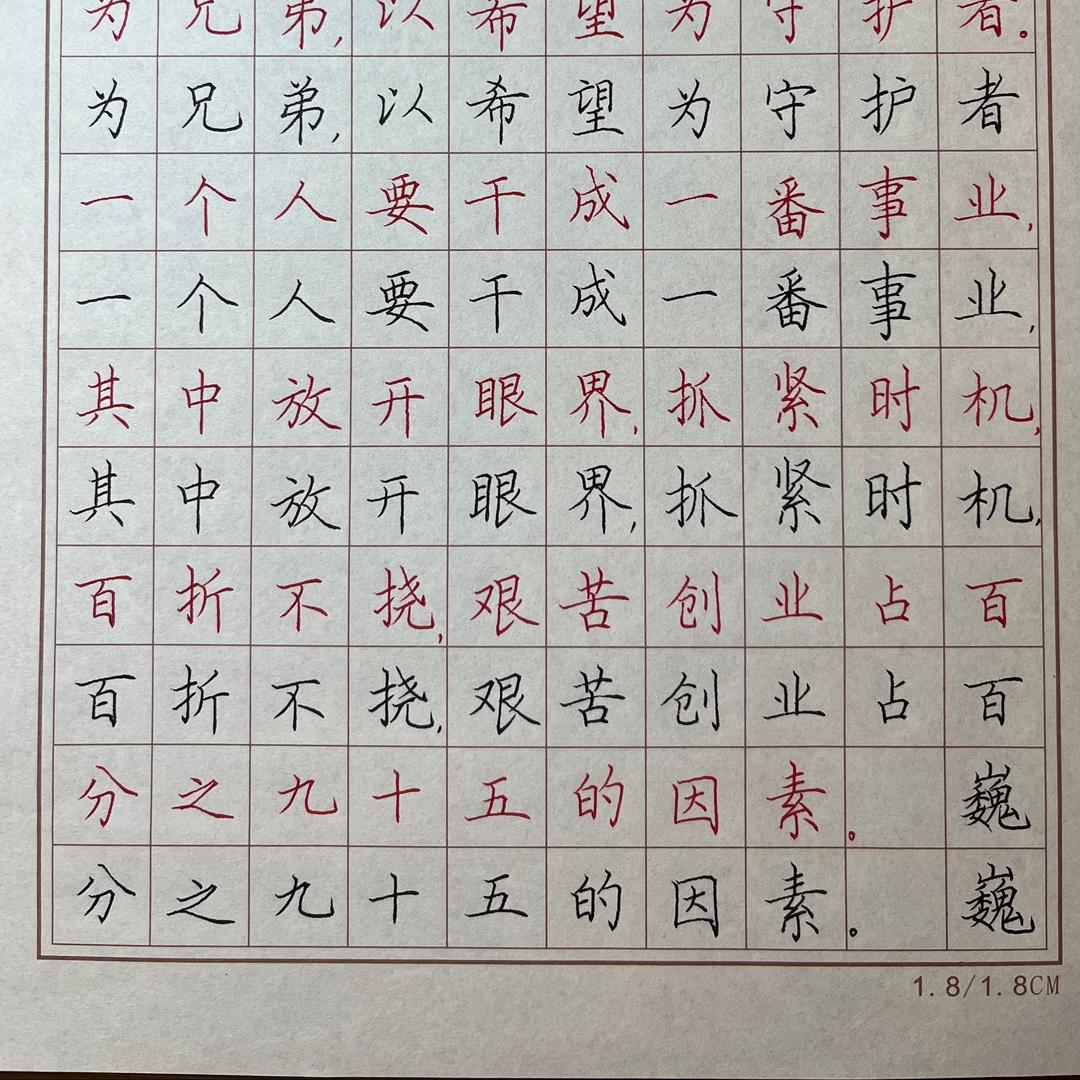 为兄弟,以希望为守护者。
为兄弟,以希望为守护者
一个人要干成一番事业,
一个人要干成一番事业,
其中放开眼界,抓紧时机,
其中放开眼界,抓紧时机,
百折不挠,艰苦创业占百
百折不挠,艰苦创业占百
分之九十五的因素。 巍
分之九十五的因素。 巍
1.8/1.8CM